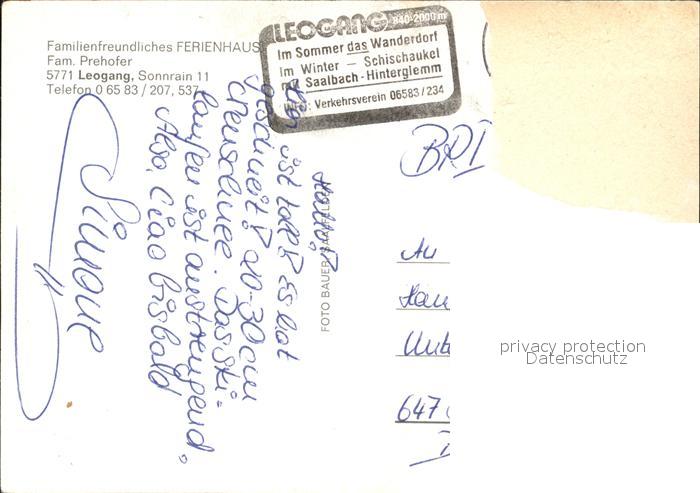 Familienfreundliches FERIENHAUS
Fam. Prehofer
5771 Leogang, Sonnrain 11
Telefon 0 65 83 / 207, 537
LEOGANG 840-2000 m
Im Sommer das Wanderdorf
im Winter – Schischaukel
mit Saalbach-Hinterglemm
Info: Verkehrsverein 06583 / 234
Hallo!
Hier ist toll! Es hat
geschneit! 20-30 cm
Neuschnee. Das Ski-
laufen ist anstrengend.
Also, Ciao bis bald
Simone
FOTO BAUER, SAALFELDEN
BRD
An
647
privacy protection
Datenschutz